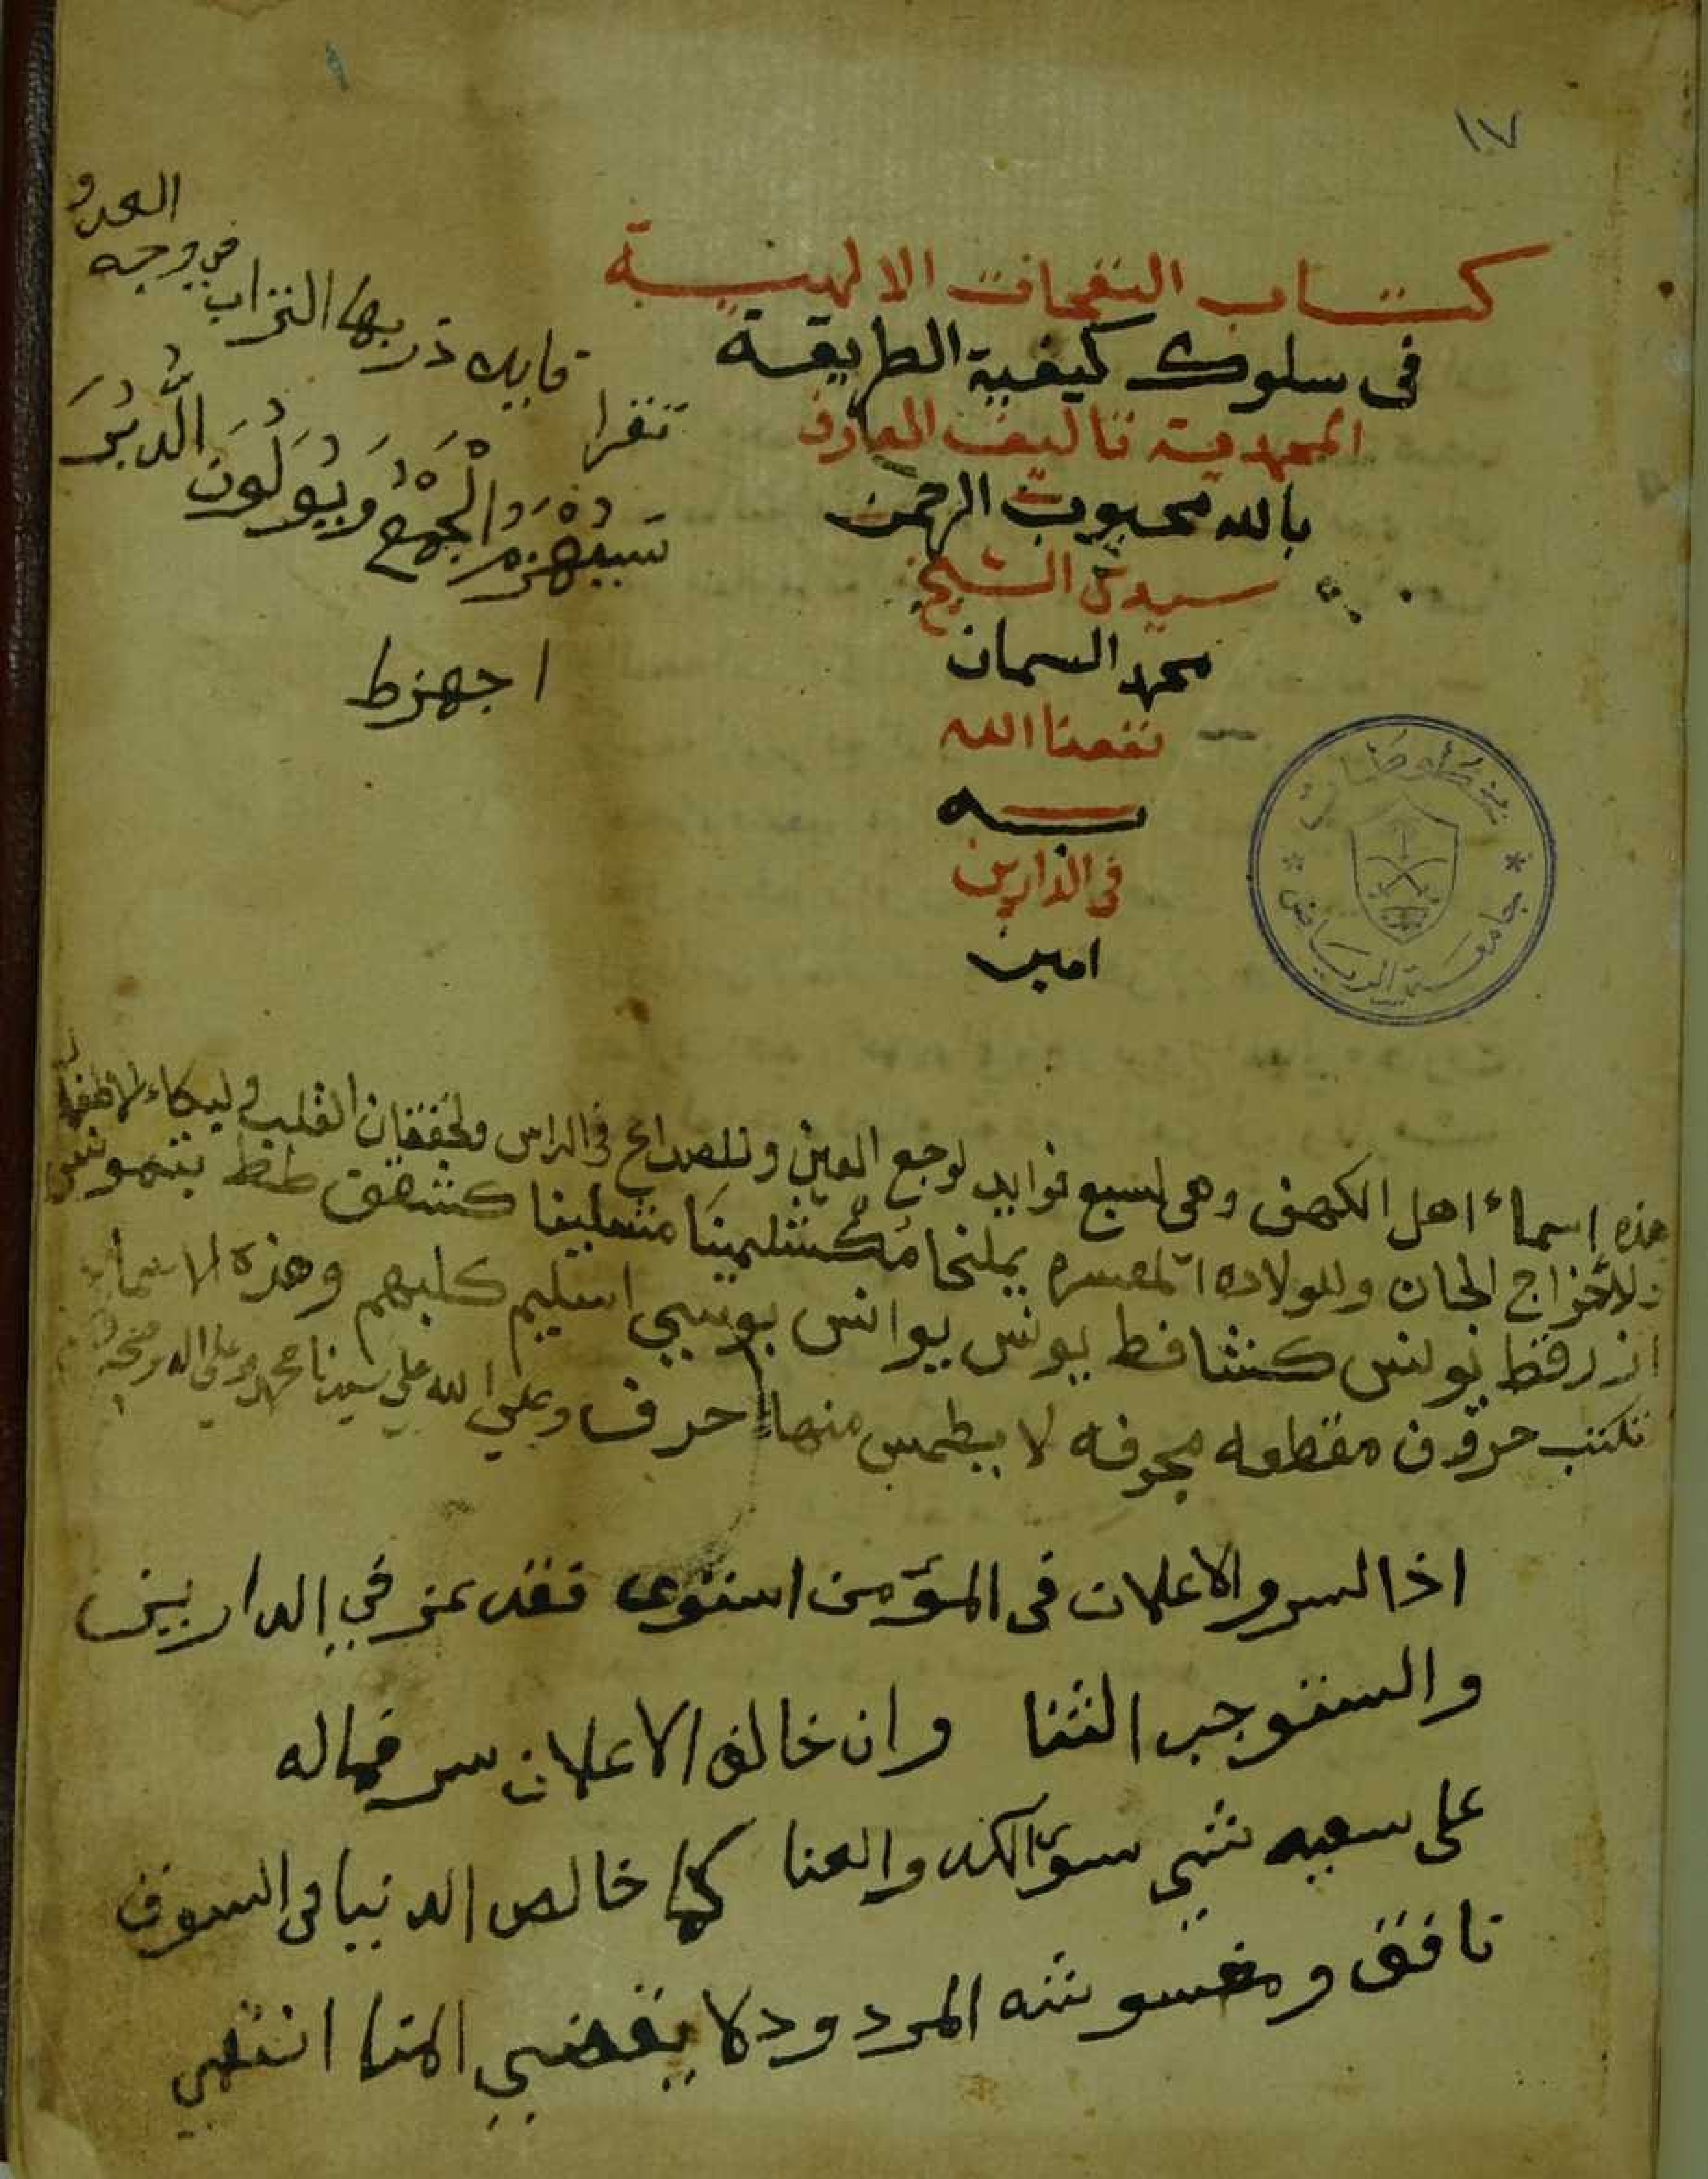 ١٧
٩
كتاب النفحات الالهية
فى سلوك كيفية الطريقة
المحمدية تاليف العارف
بالله محبوب الرحمن
سيدى الشيخ
محمد السمان
نفعنا الله
به
فى الدارين
امين
العدو
فى وجه
ذر بها التراب
تقرا
سَيُهْزَمُ الْجَمْعُ وَيُوَلُّونَ الدُّبُرَ
اجهزط
جامعة الرياض
هذه اسماء اهل الكهف وهى لسبع فوايد لوجع العين وللصداع فى الراس ولخفقان القلب ولبكاء الاطفال
وللاخراج الجان وللولاده المعسره يمليخا مكشلمينا مشلينا كشفقق طط
يونس كشافط يونس يوانس بوسي اسليم كلبهم وهذه الاسما
تكتب حروف مقطعه مجوفه لا يطمس منها حرف وصلى الله على سيدنا محمد وعلى اله وصحبه
اذا السر والاعلان فى المؤمن استوى فقد عز في الدارين
والستوجب الثنا وان خالف الاعلان سر فماله
على سعيه شي سوى الكد والعنا كما خالص الدنيا فى السوق
نافق ومغشوشه المردود لا يقضي المنا انتهي